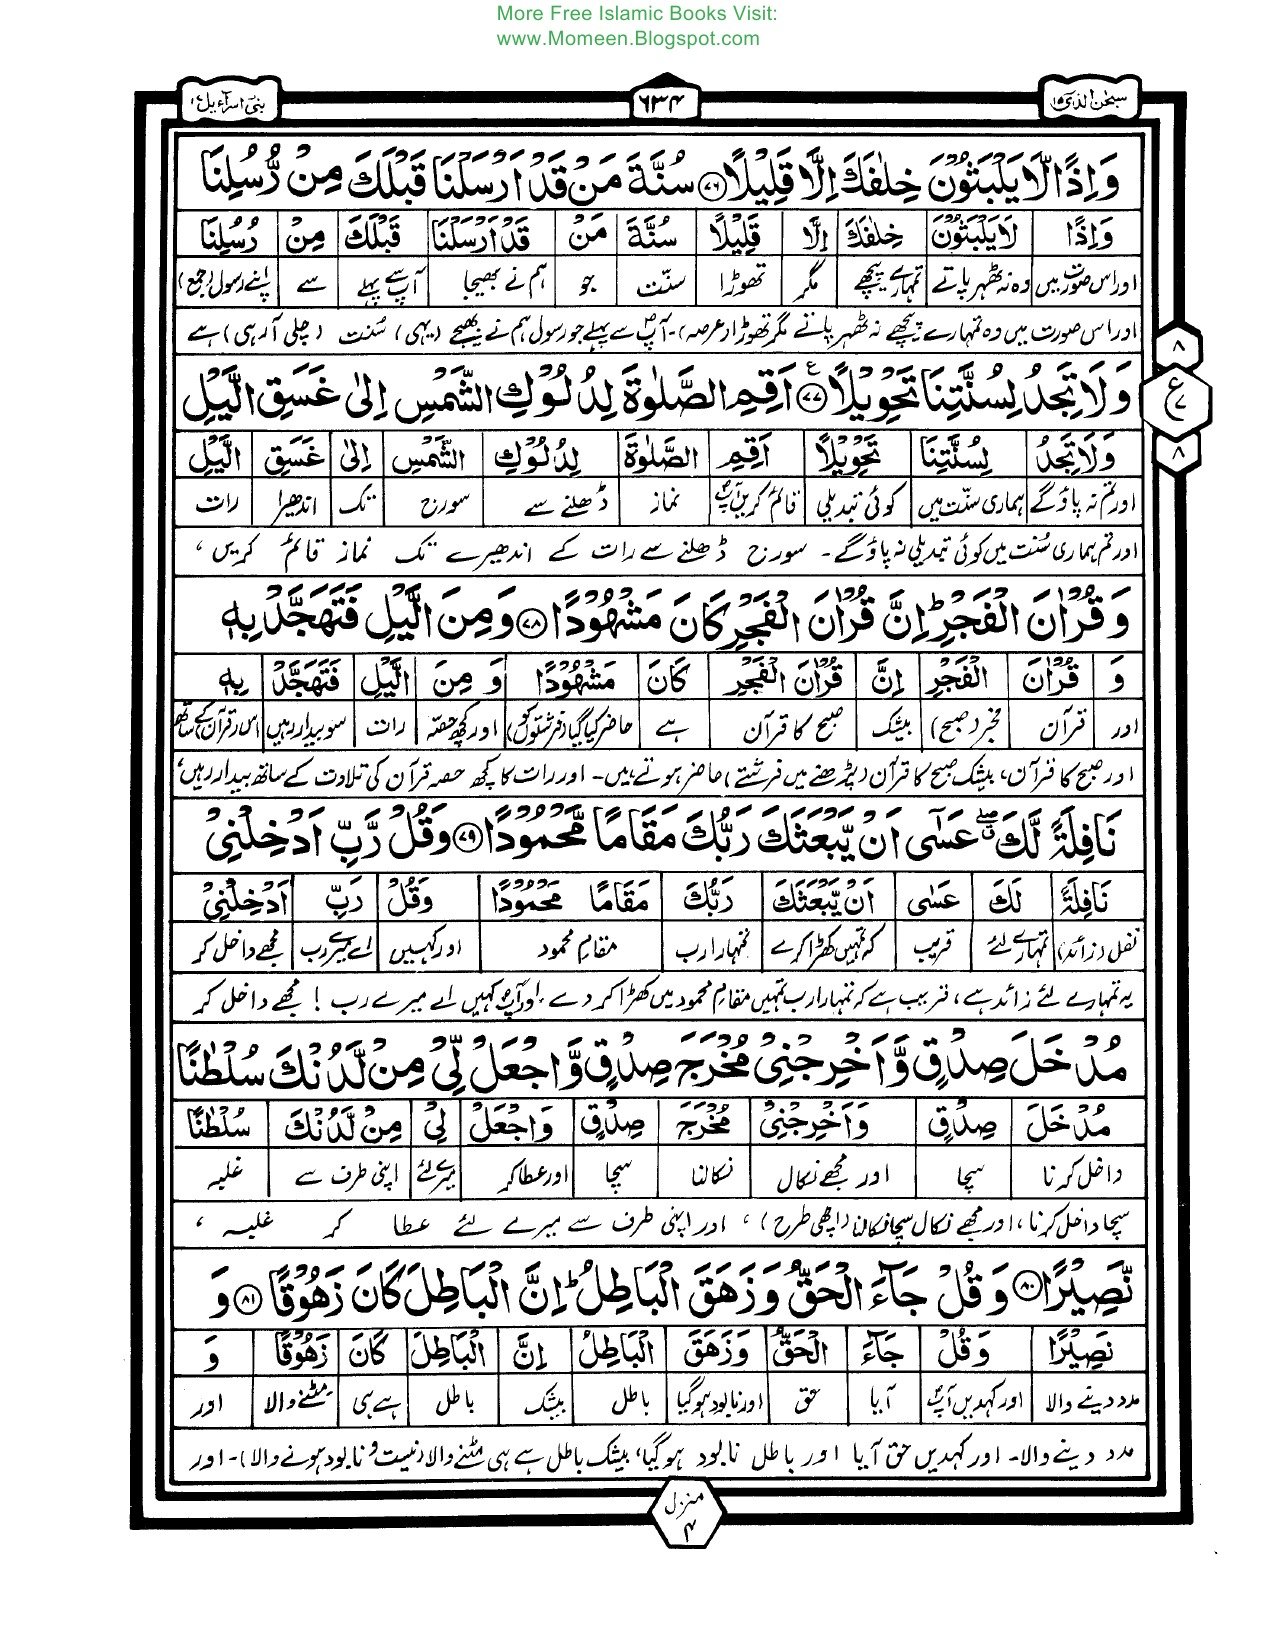 More Free Islamic Books Visit:
www.Momeen.Blogspot.com
سبحٰن الذی ۱۵
۶۳۴
بنی اسرآءیل ۱۷
وَاِذًا لَّا يَلْبَثُوْنَ خِلٰفَكَ اِلَّا قَلِيْلًا ﴿۷۶﴾ سُنَّةَ مَنْ قَدْ اَرْسَلْنَا قَبْلَكَ مِنْ رُّسُلِنَا
وَاِذًا لَا يَلْبَثُوْنَ خِلٰفَكَ اِلَّا قَلِيْلًا سُنَّةَ مَنْ قَدْ اَرْسَلْنَا قَبْلَكَ مِنْ رُسُلِنَا
اور اس صورت میں وہ نہ ٹھہر پاتے تمہارے پیچھے مگر تھوڑا سنت جو ہم نے بھیجا آپ سے پہلے سے اپنے رسول (جمع)
اور اس صورت میں وہ تمہارے پیچھے نہ ٹھہر پاتے مگر تھوڑا (عرصہ)۔ آپ سے پہلے جو رسول ہم نے بھیجے (یہی) سُنت (چلی آ رہی) ہے
۸
ع
۷
۸
وَلَا تَجِدُ لِسُنَّتِنَا تَحْوِيْلًا ﴿۷۷﴾ اَقِمِ الصَّلٰوةَ لِدُلُوْكِ الشَّمْسِ اِلٰى غَسَقِ الَّيْلِ
وَلَا تَجِدُ لِسُنَّتِنَا تَحْوِيْلًا اَقِمِ الصَّلٰوةَ لِدُلُوْكِ الشَّمْسِ اِلٰى غَسَقِ الَّيْلِ
اور تم نہ پاؤ گے ہماری سنت میں کوئی تبدیلی قائم کریں آپ نماز ڈھلنے سے سورج تک اندھیرا رات
اور تم ہماری سُنت میں کوئی تبدیلی نہ پاؤ گے۔ سورج ڈھلنے سے رات کے اندھیرے تک نماز قائم کریں،
وَقُرْاٰنَ الْفَجْرِ ؕ اِنَّ قُرْاٰنَ الْفَجْرِ كَانَ مَشْهُوْدًا ﴿۷۸﴾ وَمِنَ الَّيْلِ فَتَهَجَّدْ بِهٖ
وَ قُرْاٰنَ الْفَجْرِ اِنَّ قُرْاٰنَ الْفَجْرِ كَانَ مَشْهُوْدًا وَ مِنَ الَّيْلِ فَتَهَجَّدْ بِهٖ
اور قرآن فجر (صبح) بیشک صبح کا قرآن ہے حاضر کیا گیا (فرشتوں کو) اور کچھ حصہ رات سو بیدار رہیں اس (قرآن) کے ساتھ
اور صبح کا قرآن، بیشک صبح کا قرآن (پڑھنے میں فرشتے) حاضر ہوتے ہیں۔ اور رات کا کچھ حصہ قرآن کی تلاوت کے ساتھ بیدار رہیں،
نَافِلَةً لَّكَ ۖۗ عَسٰٓى اَنْ يَّبْعَثَكَ رَبُّكَ مَقَامًا مَّحْمُوْدًا ﴿۷۹﴾ وَقُلْ رَّبِّ اَدْخِلْنِيْ
نَافِلَةً لَكَ عَسٰى اَنْ يَّبْعَثَكَ رَبُّكَ مَقَامًا مَحْمُوْدًا وَقُلْ رَبِّ اَدْخِلْنِيْ
نفل (زائد) تمہارے لئے قریب کہ تمہیں کھڑا کرے تمہارا رب مقامِ محمود اور کہیں اے میرے رب مجھے داخل کر
یہ تمہارے لئے زائد ہے، قریب ہے کہ تمہارا رب تمہیں مقامِ محمود میں کھڑا کر دے، اور آپ کہیں اے میرے رب! مجھے داخل کر
مُدْخَلَ صِدْقٍ وَّاَخْرِجْنِيْ مُخْرَجَ صِدْقٍ وَّاجْعَلْ لِّيْ مِنْ لَّدُنْكَ سُلْطٰنًا
مُدْخَلَ صِدْقٍ وَاَخْرِجْنِيْ مُخْرَجَ صِدْقٍ وَاجْعَلْ لِيْ مِنْ لَّدُنْكَ سُلْطٰنًا
داخل کرنا سچا اور مجھے نکال نکالنا سچا اور عطا کر میرے لئے اپنی طرف سے غلبہ
سچا داخل کرنا، اور مجھے نکال سچا نکالنا (اچھی طرح)، اور اپنی طرف سے میرے لئے عطا کر غلبہ،
نَّصِيْرًا ﴿۸۰﴾ وَقُلْ جَآءَ الْحَقُّ وَزَهَقَ الْبَاطِلُ ؕ اِنَّ الْبَاطِلَ كَانَ زَهُوْقًا ﴿۸۱﴾ وَ
نَصِيْرًا وَقُلْ جَآءَ الْحَقُّ وَزَهَقَ الْبَاطِلُ اِنَّ الْبَاطِلَ كَانَ زَهُوْقًا وَ
مدد دینے والا اور کہدیں آپ آیا حق اور نابود ہو گیا باطل بیشک باطل ہے ہی مٹنے والا اور
مدد دینے والا۔ اور کہدیں حق آیا اور باطل نابود ہو گیا، بیشک باطل ہے ہی مٹنے والا (نیست و نابود ہونے والا)۔ اور
منزل
۴